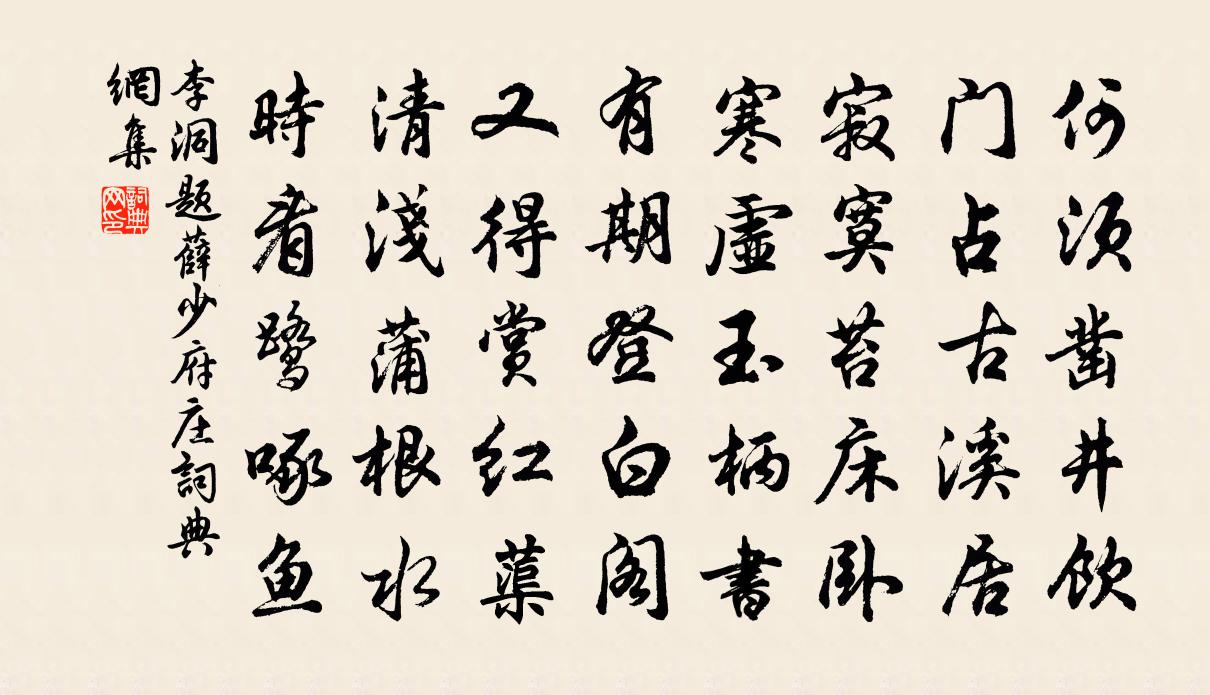 何须凿井饮
门占古溪居
寂寞苔床卧
寒虚玉柄書
有期登白阁
又得赏红蕖
清淺蒲根水
時看鹭啄鱼
李洞题薛少府庄詞典
網集
詞典
网印